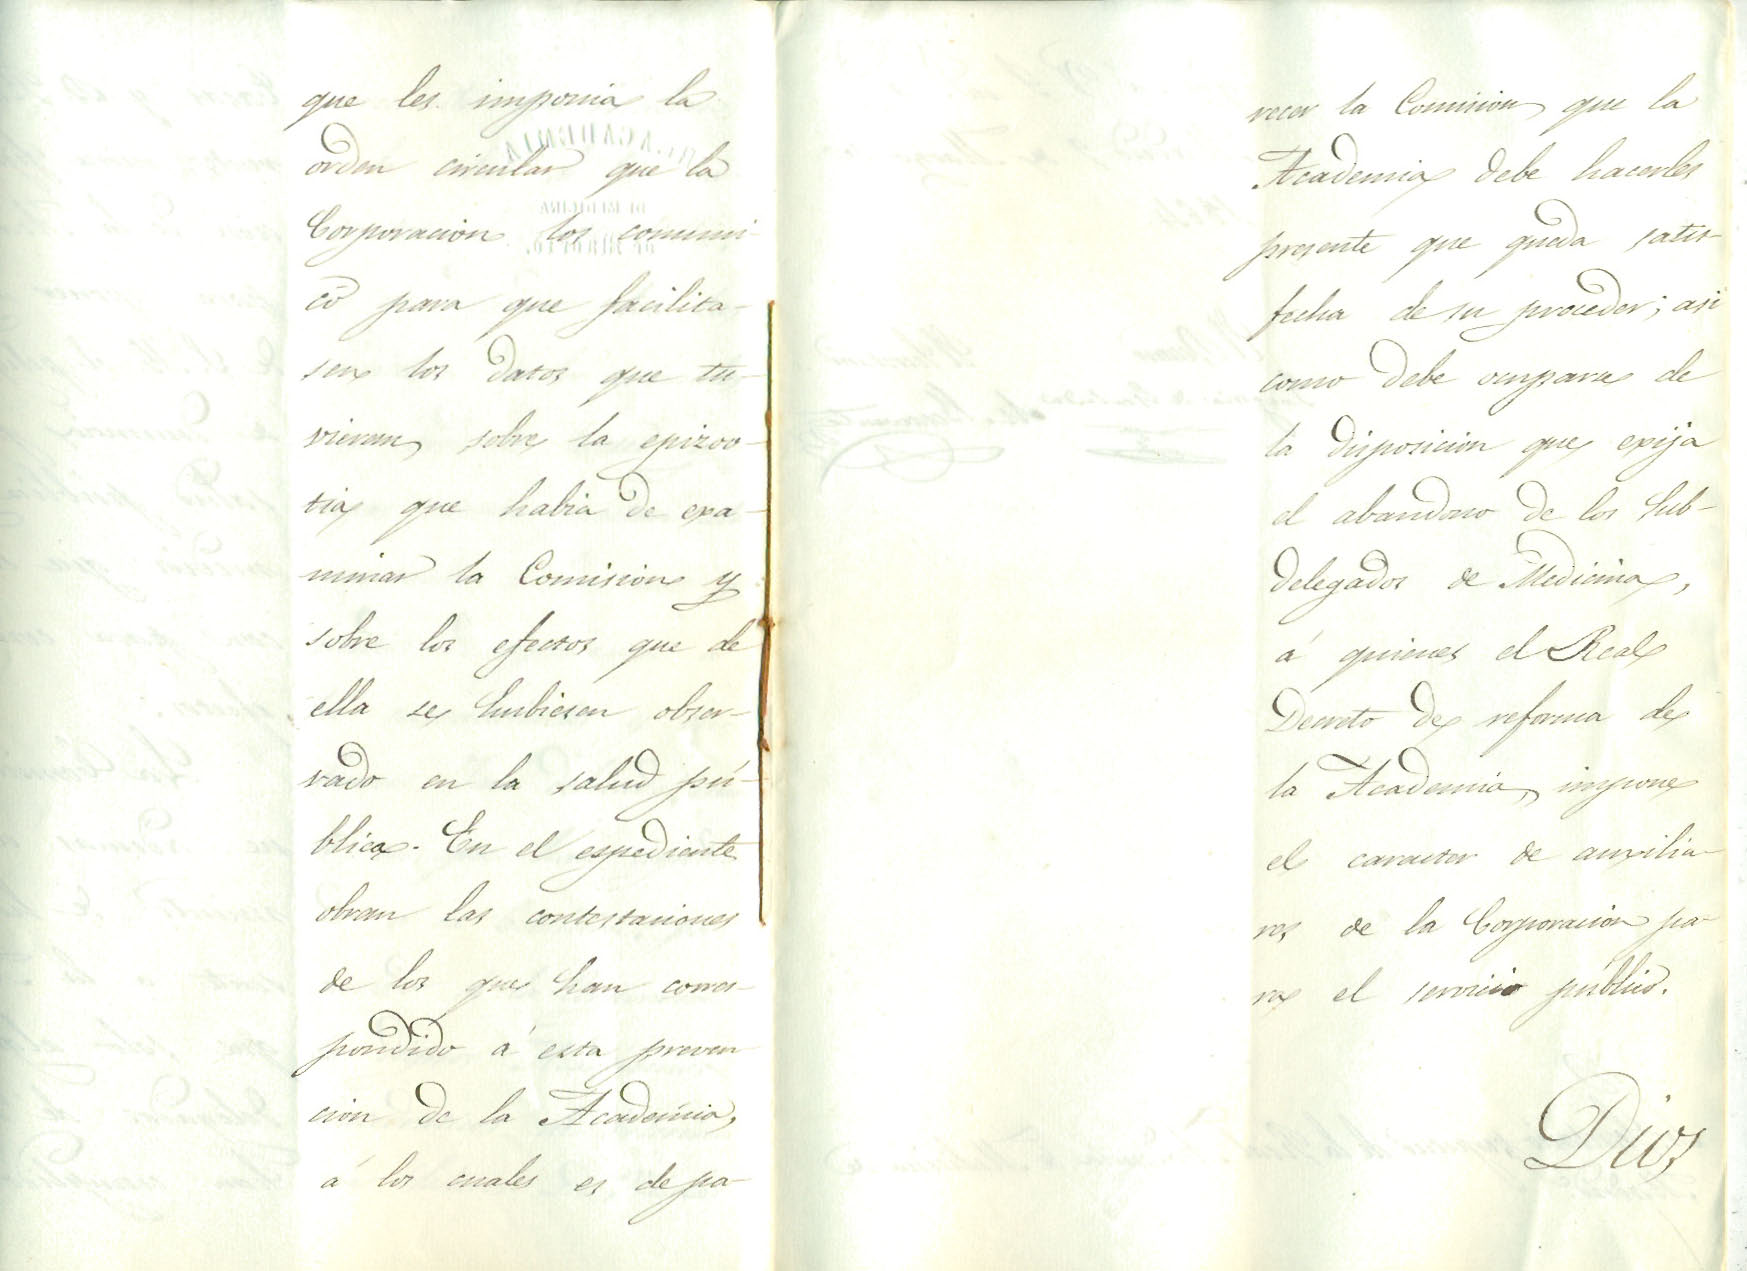 que les imponia la
orden circular que la
Corporacion los comuni-
có para que facilita-
sen los datos que tu-
vieran sobre la epizoo-
tia que habia de exa-
minar la Comision y
sobre los efectos que de
ella se hubiesen obser-
vado en la salud pú-
blica. En el espediente
obran las contestaciones
de los que han corres-
pondido á esta preven
cion de la Academia,
á los cuales es de pa-
recer la Comision que la
Academia debe hacerles
presente que queda satis-
fecha de su proceder; asi
como debe ocuparse de
la disposicion que exija
el abandono de los Sub-
delegados de Medicina,
á quienes el Real
Decreto de reforma de
la Academia, impone
el caracter de auxilia-
res de la Corporacion pa-
ra el servicio público.
Dios